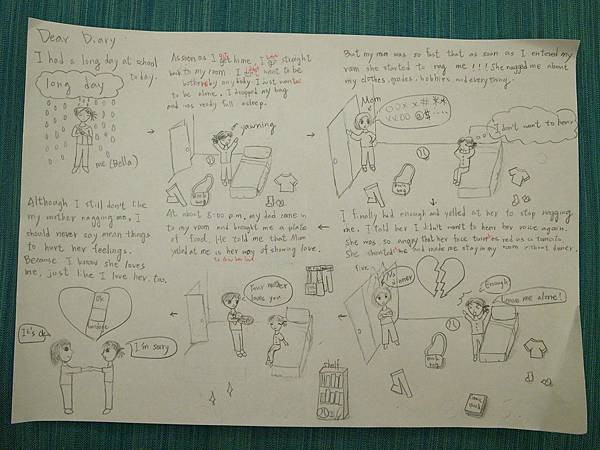 Dear Diary:
I had a long day at school
today.
long day
me (Bella)
As soon as I got home, I go straight
back to my room. I want to be
bothered by anybody. I just want
to be alone. I dropped my bag
and was ready fall asleep.
yawning
But my mom was so fast that as soon as I entered my
room she started to nag me!!! She nagged me about
my clothes, grades, hobbies and everything.
Mom
I don't want to hear
book bag
I finally had enough and yelled at her to stop nagging
me. I told her I didn't want to hear her voice again.
She was so angry that her face turned as red as a tomato.
She shouted me and made me stay in my room without dinner
No dinner
Enough!
Leave me alone!
book bag
comic book
At about 8:00 p.m, my dad came in
to my room and brought me a plate
of food. He told me that Mom
yelled at me is her way of showing love.
Your mother
loves you
shelf
Although I still don't like
my mother nagging me, I
should never say mean things
to hurt her feelings.
Because I know she loves
me, just like I love her, too.
OK
bandage
It's ok
I'm sorry